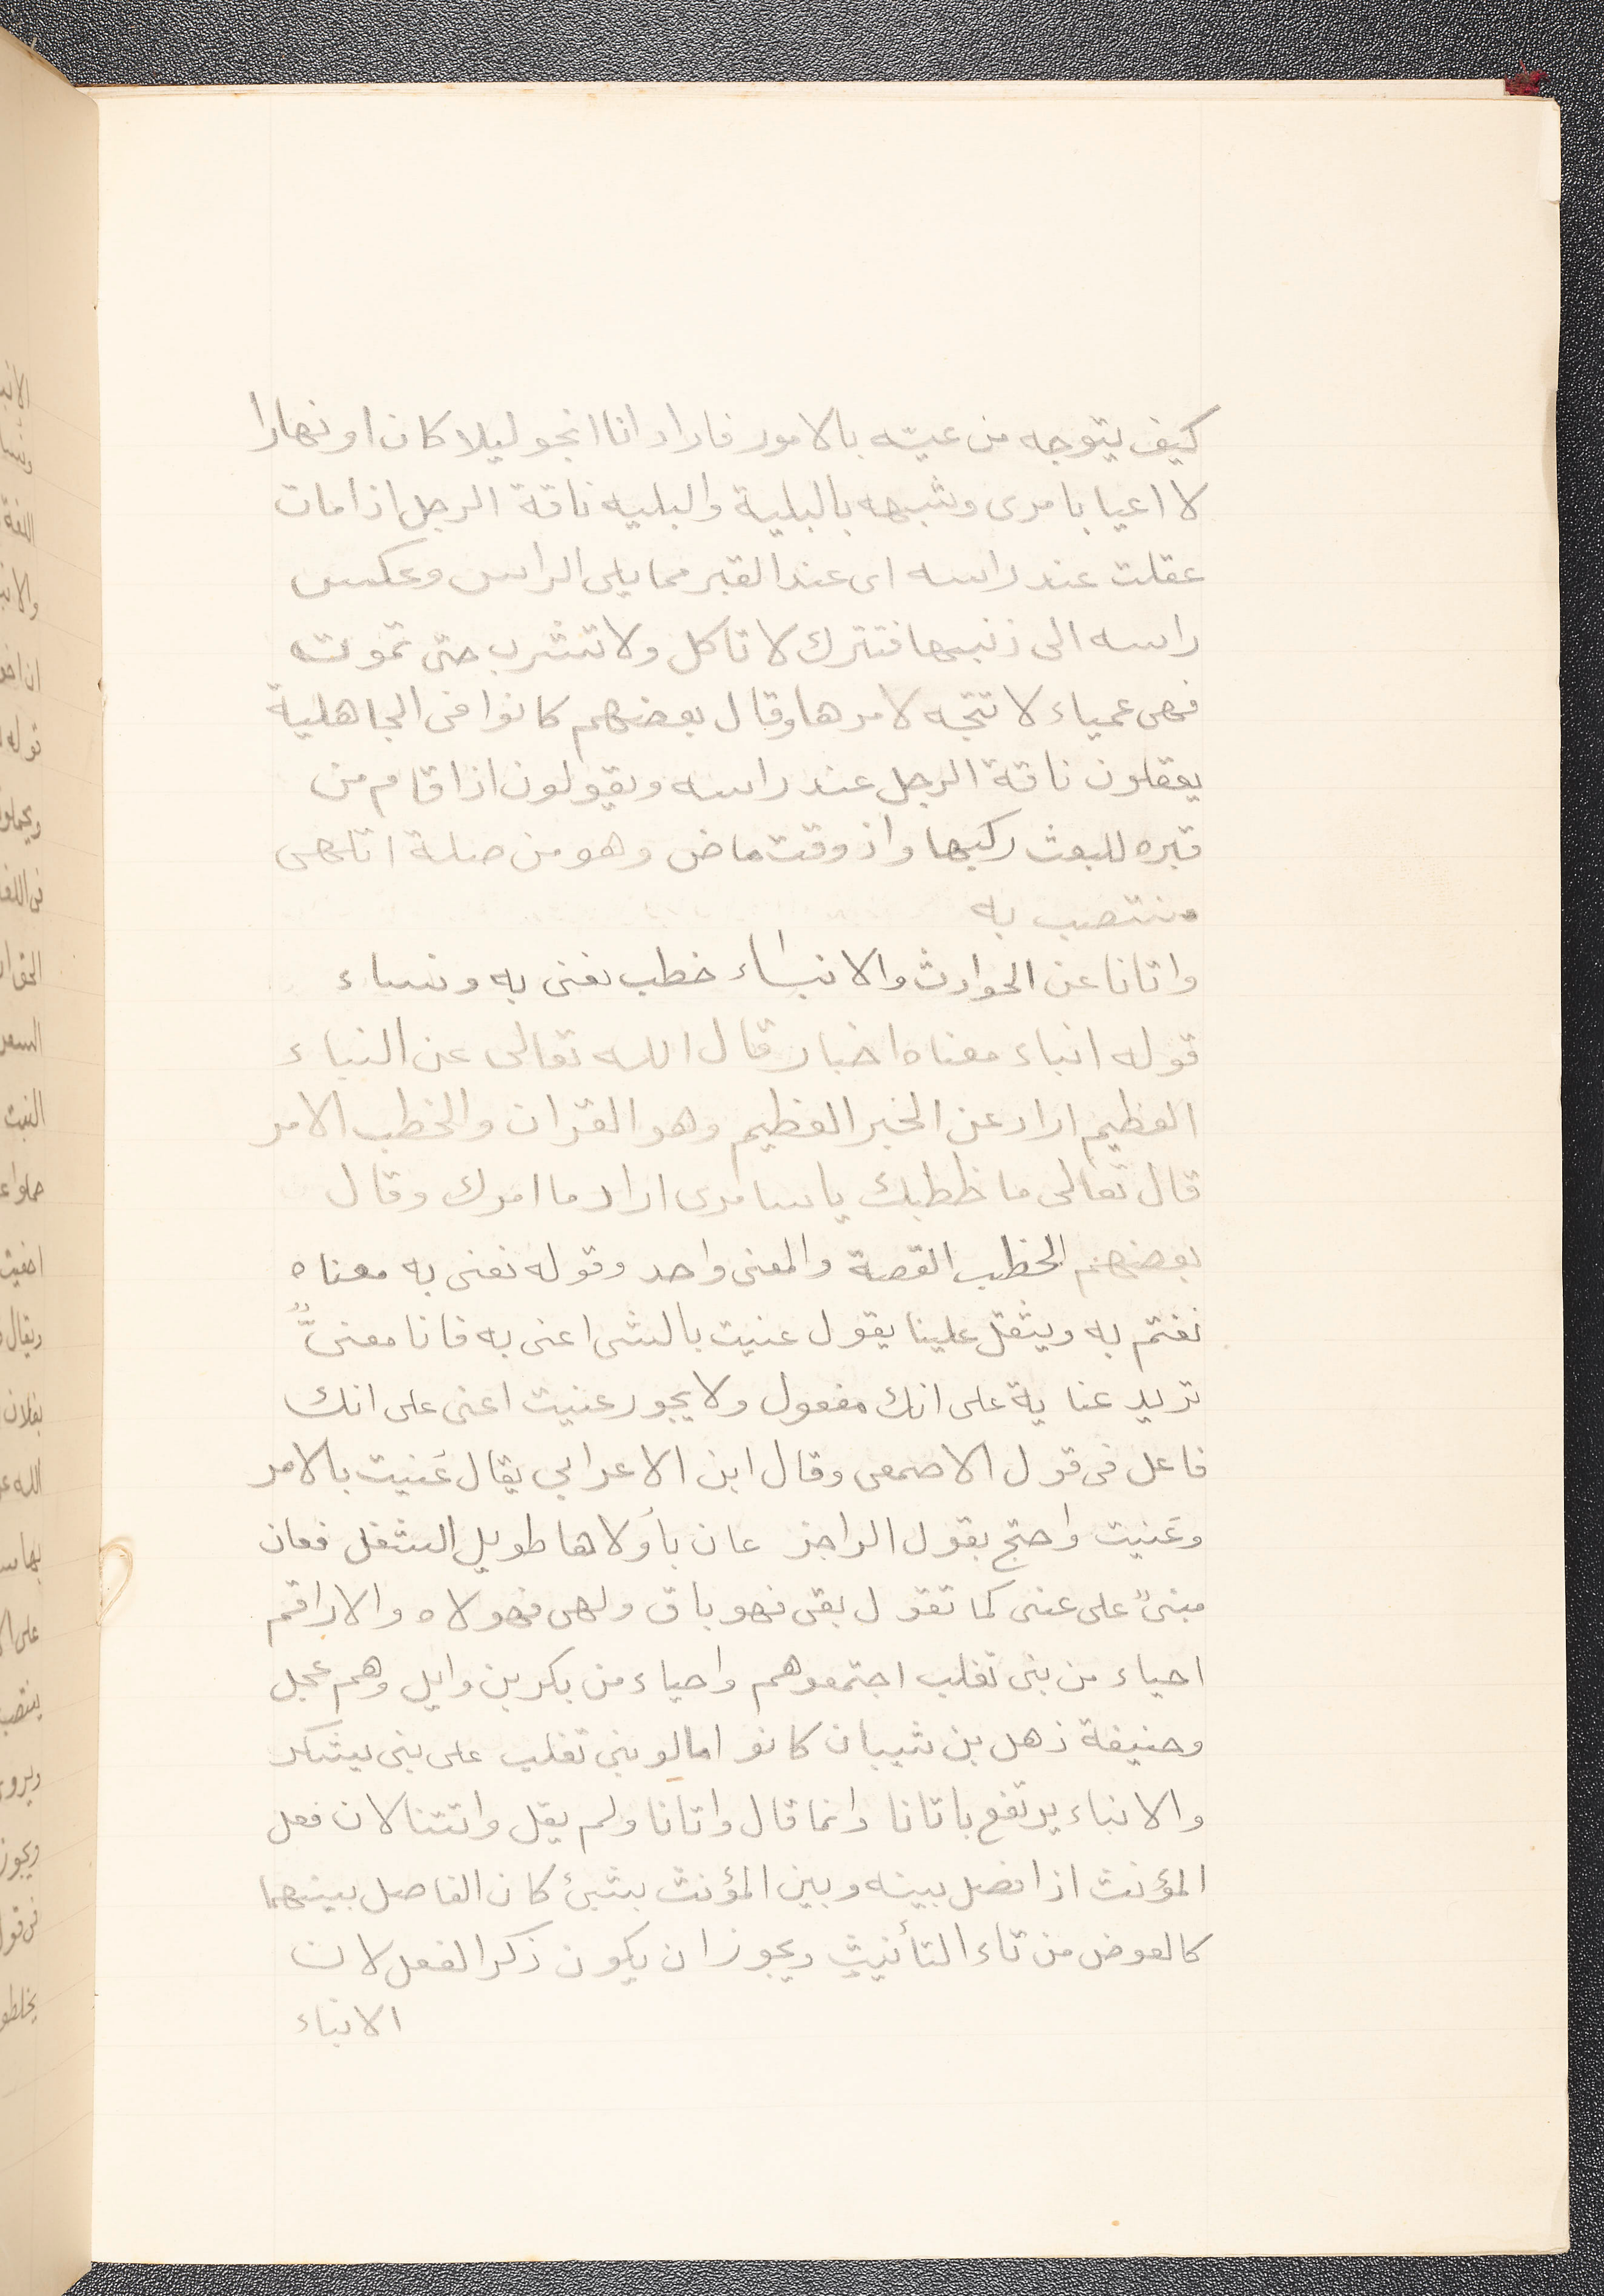 كيف يتوجه من عيّه بالامور فاراد انا انجو ليلا كان او نهارا
لا اعيا بامرى وشبهه بالبلية والبليه ناقة الرجل اذا مات
عقلت عند راسه اى عند القبر مما يلى الراس وعكس
راسه الى ذنبها فتترك لا تاكل ولا تشرب حتى تموت
فهى عمياء لا تتجه لامرها وقال بعضهم كانوا فى الجاهلية
يعقلون ناقة الرجل عند راسه ويقولون اذا قام من
قبره للبعث ركبها واذ وقت ماض وهو من صلة اتلهى
منتصب به
واتانا عن الحوادث والانباء خطب نعنى به ونساء
قوله انباء معناه اخبار قال الله تعالى عن النباء
العظيم اراد عن الخبر العظيم وهو القران والخطب الامر
قال تعالى ما خطبك يا سامرى اراد ما امرك وقال
بعضهم الخطب القصة والمعنى واحد وقوله نعنى به معناه
نغتم به ويثقل علينا يقول عنيت بالشى اعنى به فانا معنىٌّ
تريد عناية على انك مفعول ولا يجور عنيت اعنى على انك
فاعل فى قول الاصمعى وقال ابن الاعرابي يقال عَنيت بالامر
وعَنيت واحتج بقول الراجز عان بأولاها طويل الشغل فعان
مبنىٌ على عنى كما تقول بقى فهو باق ولهى فهو لاه والاراقم
احياء من بنى تغلب اجتمعوهم واحياء من بكر بن وايل وهم عجل
وحنيفة ذهل بن شيبان كانوا مالو بنى تغلب على بنى يشكر
والانباء يرتفع باتانا وانما قال واتانا ولم يقل واتتنا لان فعل
المؤنث اذا فصل بينه وبين المؤنث بشئ كان الفاصل بينهما
كالعوض من تاء التأنيث ويجوز ان يكون ذكر الفعل لان
الانباء